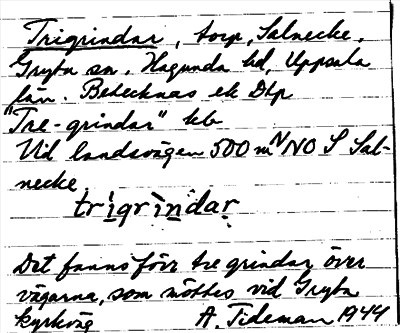 Trigrindar, torp, Salnecke,
Gryta sn, Hagunda hd, Uppsala
län. Betecknas ek Dtp
"Tre-grindar" kb
Vid landsvägen 500 m NNO S Sal-
necke
trigrindar
Det fanns förr tre grindar över
vägarna, som möttes vid Gryta
kyrkväg A. Tideman 1944